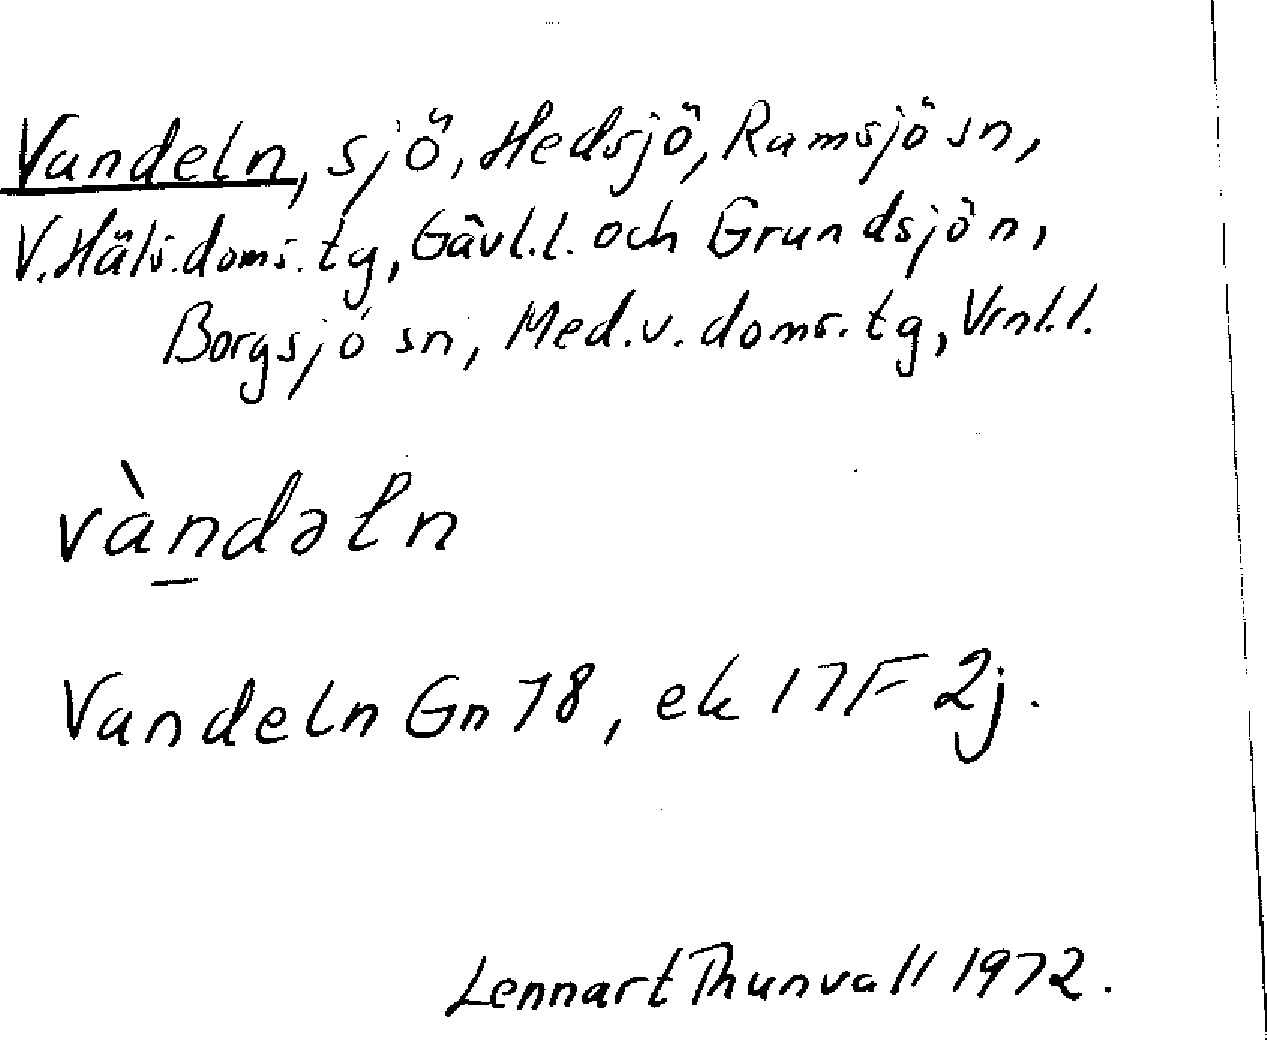 Vandeln, sjö, Hedsjö, Ramsjö sn,
V. Häls. doms. tg, Gävl.l. och Grundsjön,
Borgsjö sn, Med. v. doms. tg, Vrnl.l.
vàn̲dəƚn
Vandeln Gn 78, ek 17F 2j.
Lennart Thunvall 1972.